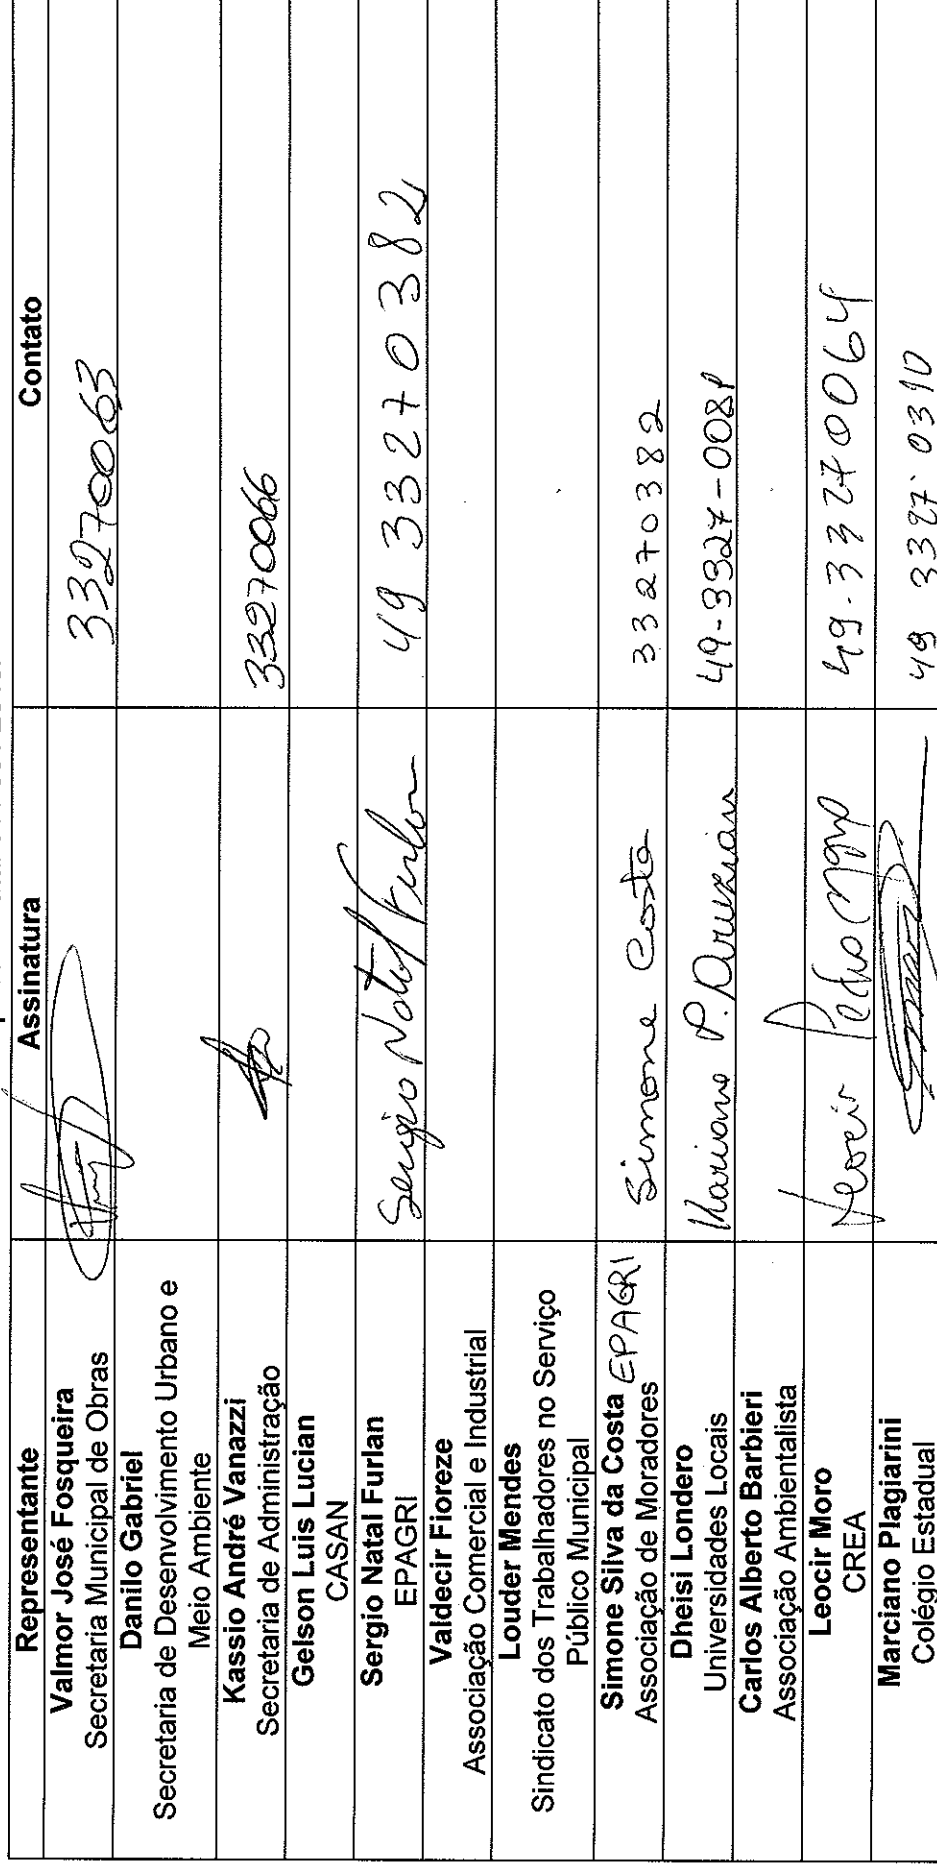 Representante Assinatura Contato
Valmor José Fosqueira
Secretaria Municipal de Obras
33270063
Danilo Gabriel
Secretaria de Desenvolvimento Urbano e
Meio Ambiente
Kassio André Vanazzi
Secretaria de Administração
33270066
Gelson Luis Lucian
CASAN
Sergio Natal Furlan
EPAGRI
Sergio Natal Furlan
49 33270382
Valdecir Fioreze
Associação Comercial e Industrial
Louder Mendes
Sindicato dos Trabalhadores no Serviço
Público Municipal
Simone Silva da Costa EPAGRI
Associação de Moradores
Simone Costa
33270382
Dheisi Londero
Universidades Locais
P.
49-3327-0081
Carlos Alberto Barbieri
Associação Ambientalista
Leocir Moro
CREA
Leocir Pedro Moro
49-33270064
Marciano Plagiarini
Colégio Estadual
49 3327 0310